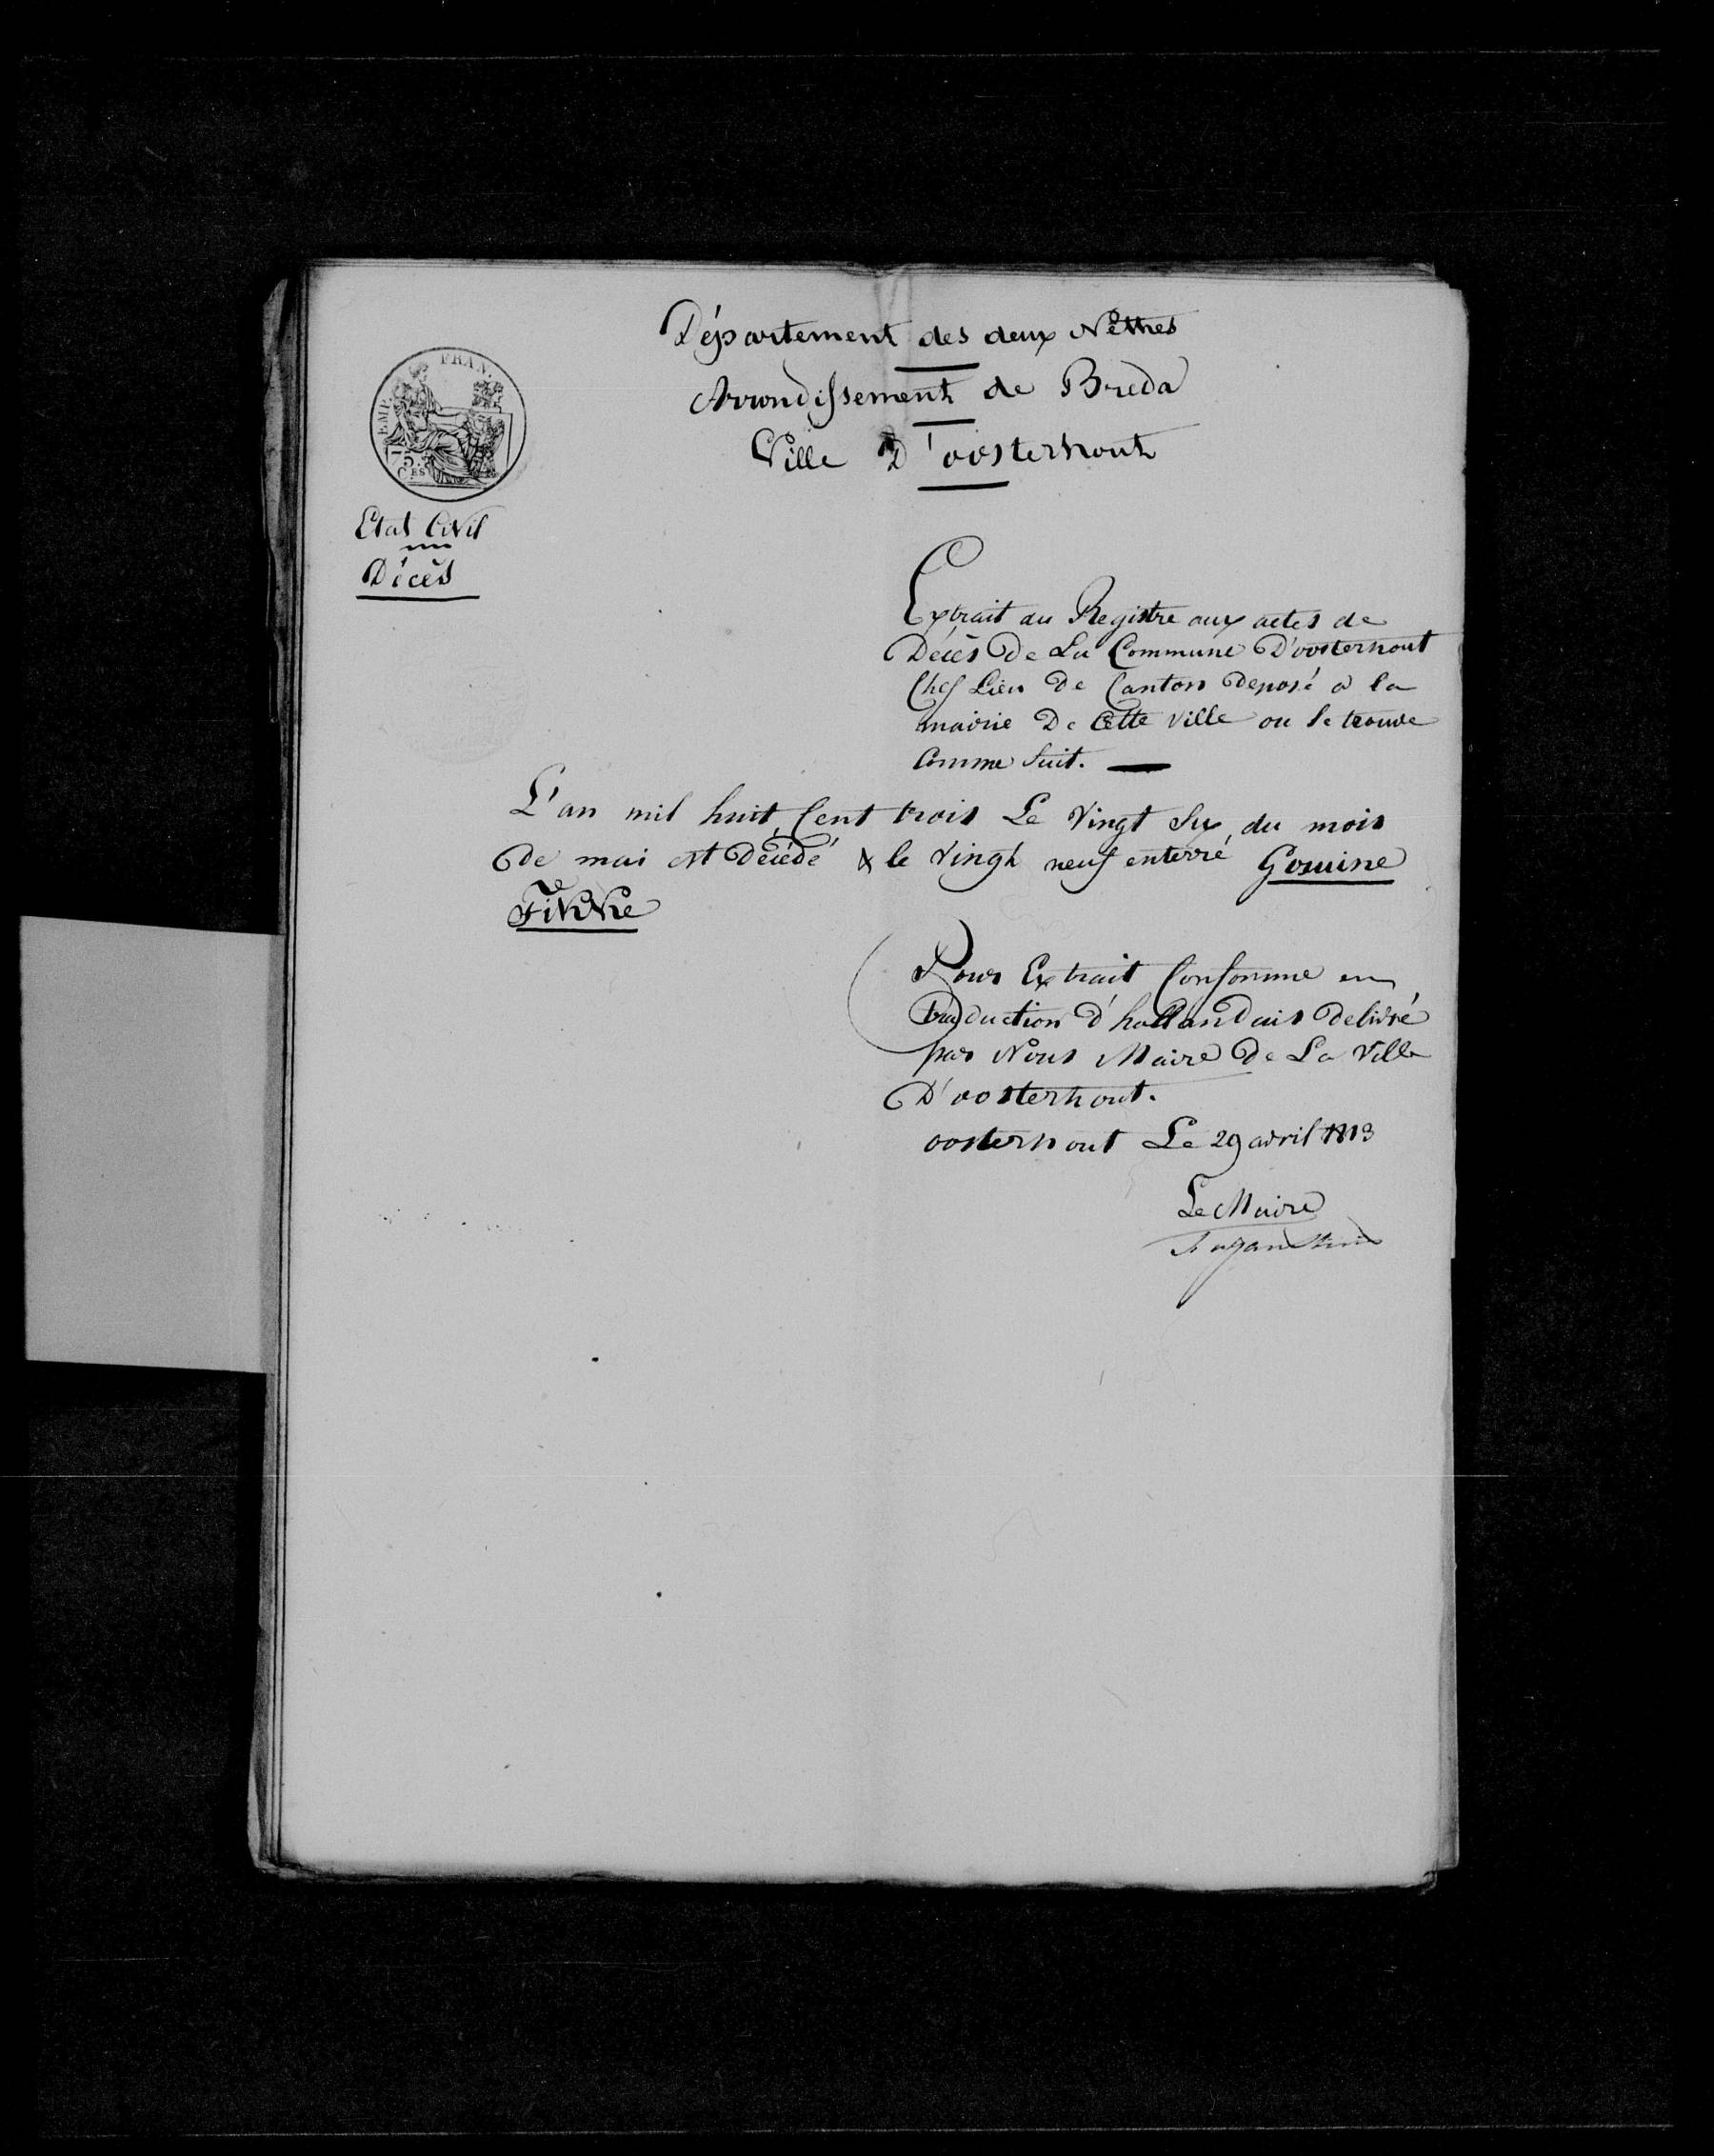 Département des deux Nèthes
Arrondissement de Breda
Ville D'oosterhout
EMP. FRAN.
75
CES
Etat Civil
Décès
Extrait du Registre aux actes de
Décès De La Commune D'oosterhout
Chef Lieu De Canton deposé a la
mairie De Cette Ville ou se trouve
Comme Suit.
L'an mil huit Cent trois Le Vingt Six du mois
de mai est Décédé & le Vingt neuf enterré Gouine
Pour Extrait Conforme en
traduction d'hollandais delivré
par Nous Maire De La Ville
D'oosterhout.
oosterhout Le 29 avril 1813
Le Maire